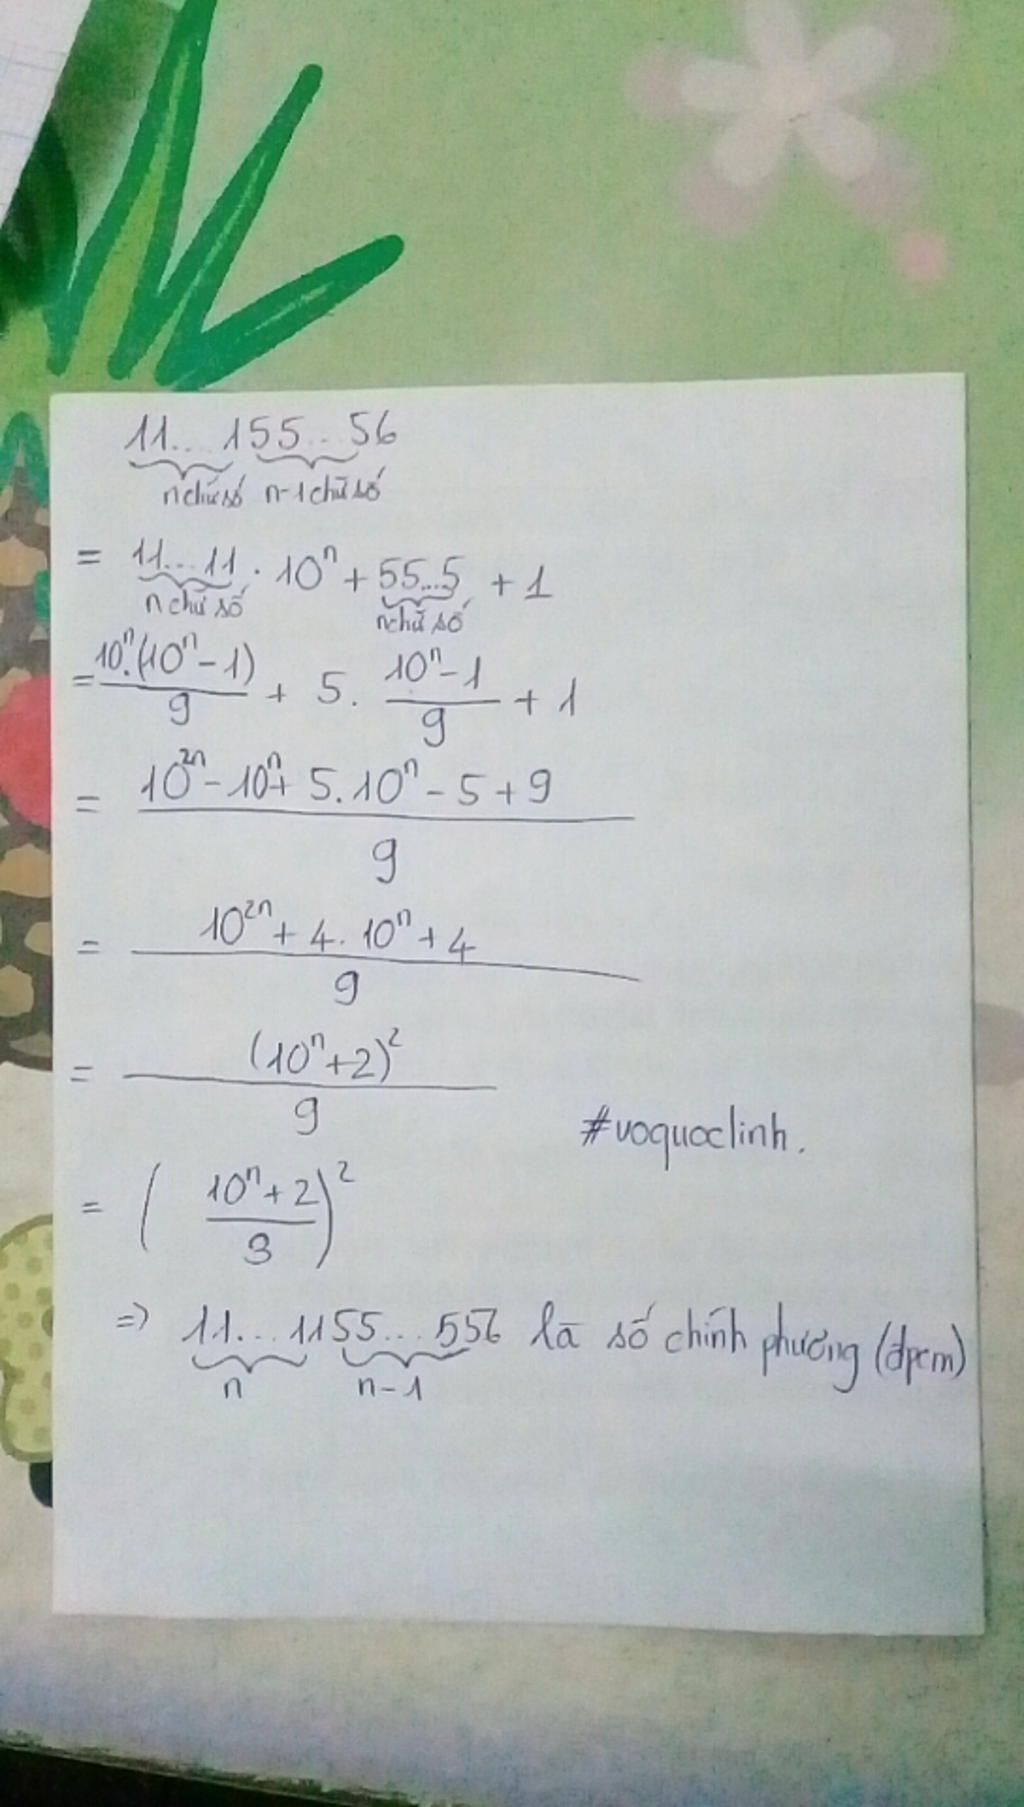 11...155...56
n chữ số n-1 chữ số
= 11...11 . 10ⁿ + 55...5 + 1
n chữ số n chữ số
= 10ⁿ.(10ⁿ - 1)/9 + 5. (10ⁿ - 1)/9 + 1
= (10²ⁿ - 10ⁿ + 5.10ⁿ - 5 + 9)/9
= (10²ⁿ + 4.10ⁿ + 4)/9
= (10ⁿ + 2)²/9
#voquoclinh.
= ((10ⁿ + 2)/3)²
=> 11...1155...556 là số chính phương (đpcm)
n n-1